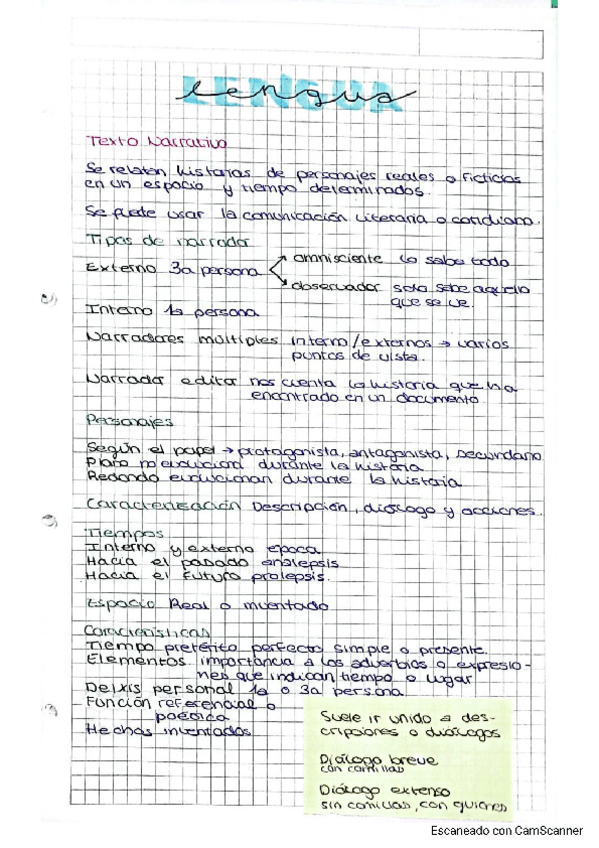 Lengua
Texto Narrativo
Se relatan historias de personajes reales o ficticios
en un espacio y tiempo determinados.
Se puede usar la comunicación literaria o cotidiana.
Tipos de narrador
Externo 3a persona
omnisciente lo sabe todo
observador solo sabe aquello
que se ve.
Interno 1a persona
Narradores múltiples interno/externos → varios
puntos de vista.
Narrador editor nos cuenta la historia que ha
encontrado en un documento
Personajes
Según el papel → protagonista, antagonista, secundario
Plano no evoluciona durante la historia
Redondo evolucionan durante la historia
Caracterización Descripción, diálogo y acciones.
Tiempos
Interno y externo época
Hacia el pasado analepsis
Hacia el futuro prolepsis.
Espacio Real o inventado
Características
Tiempo pretérito perfecto simple o presente.
Elementos importancia a los adverbios o expresio-
nes que indican tiempo o lugar
Deixis personal 1a o 3a persona
Función referencial o
poética
Hechos inventados
Suele ir unido a des-
cripciones o diálogos
Diálogo breve
con comillas
Diálogo extenso
sin comillas, con guiones
Escaneado con CamScanner